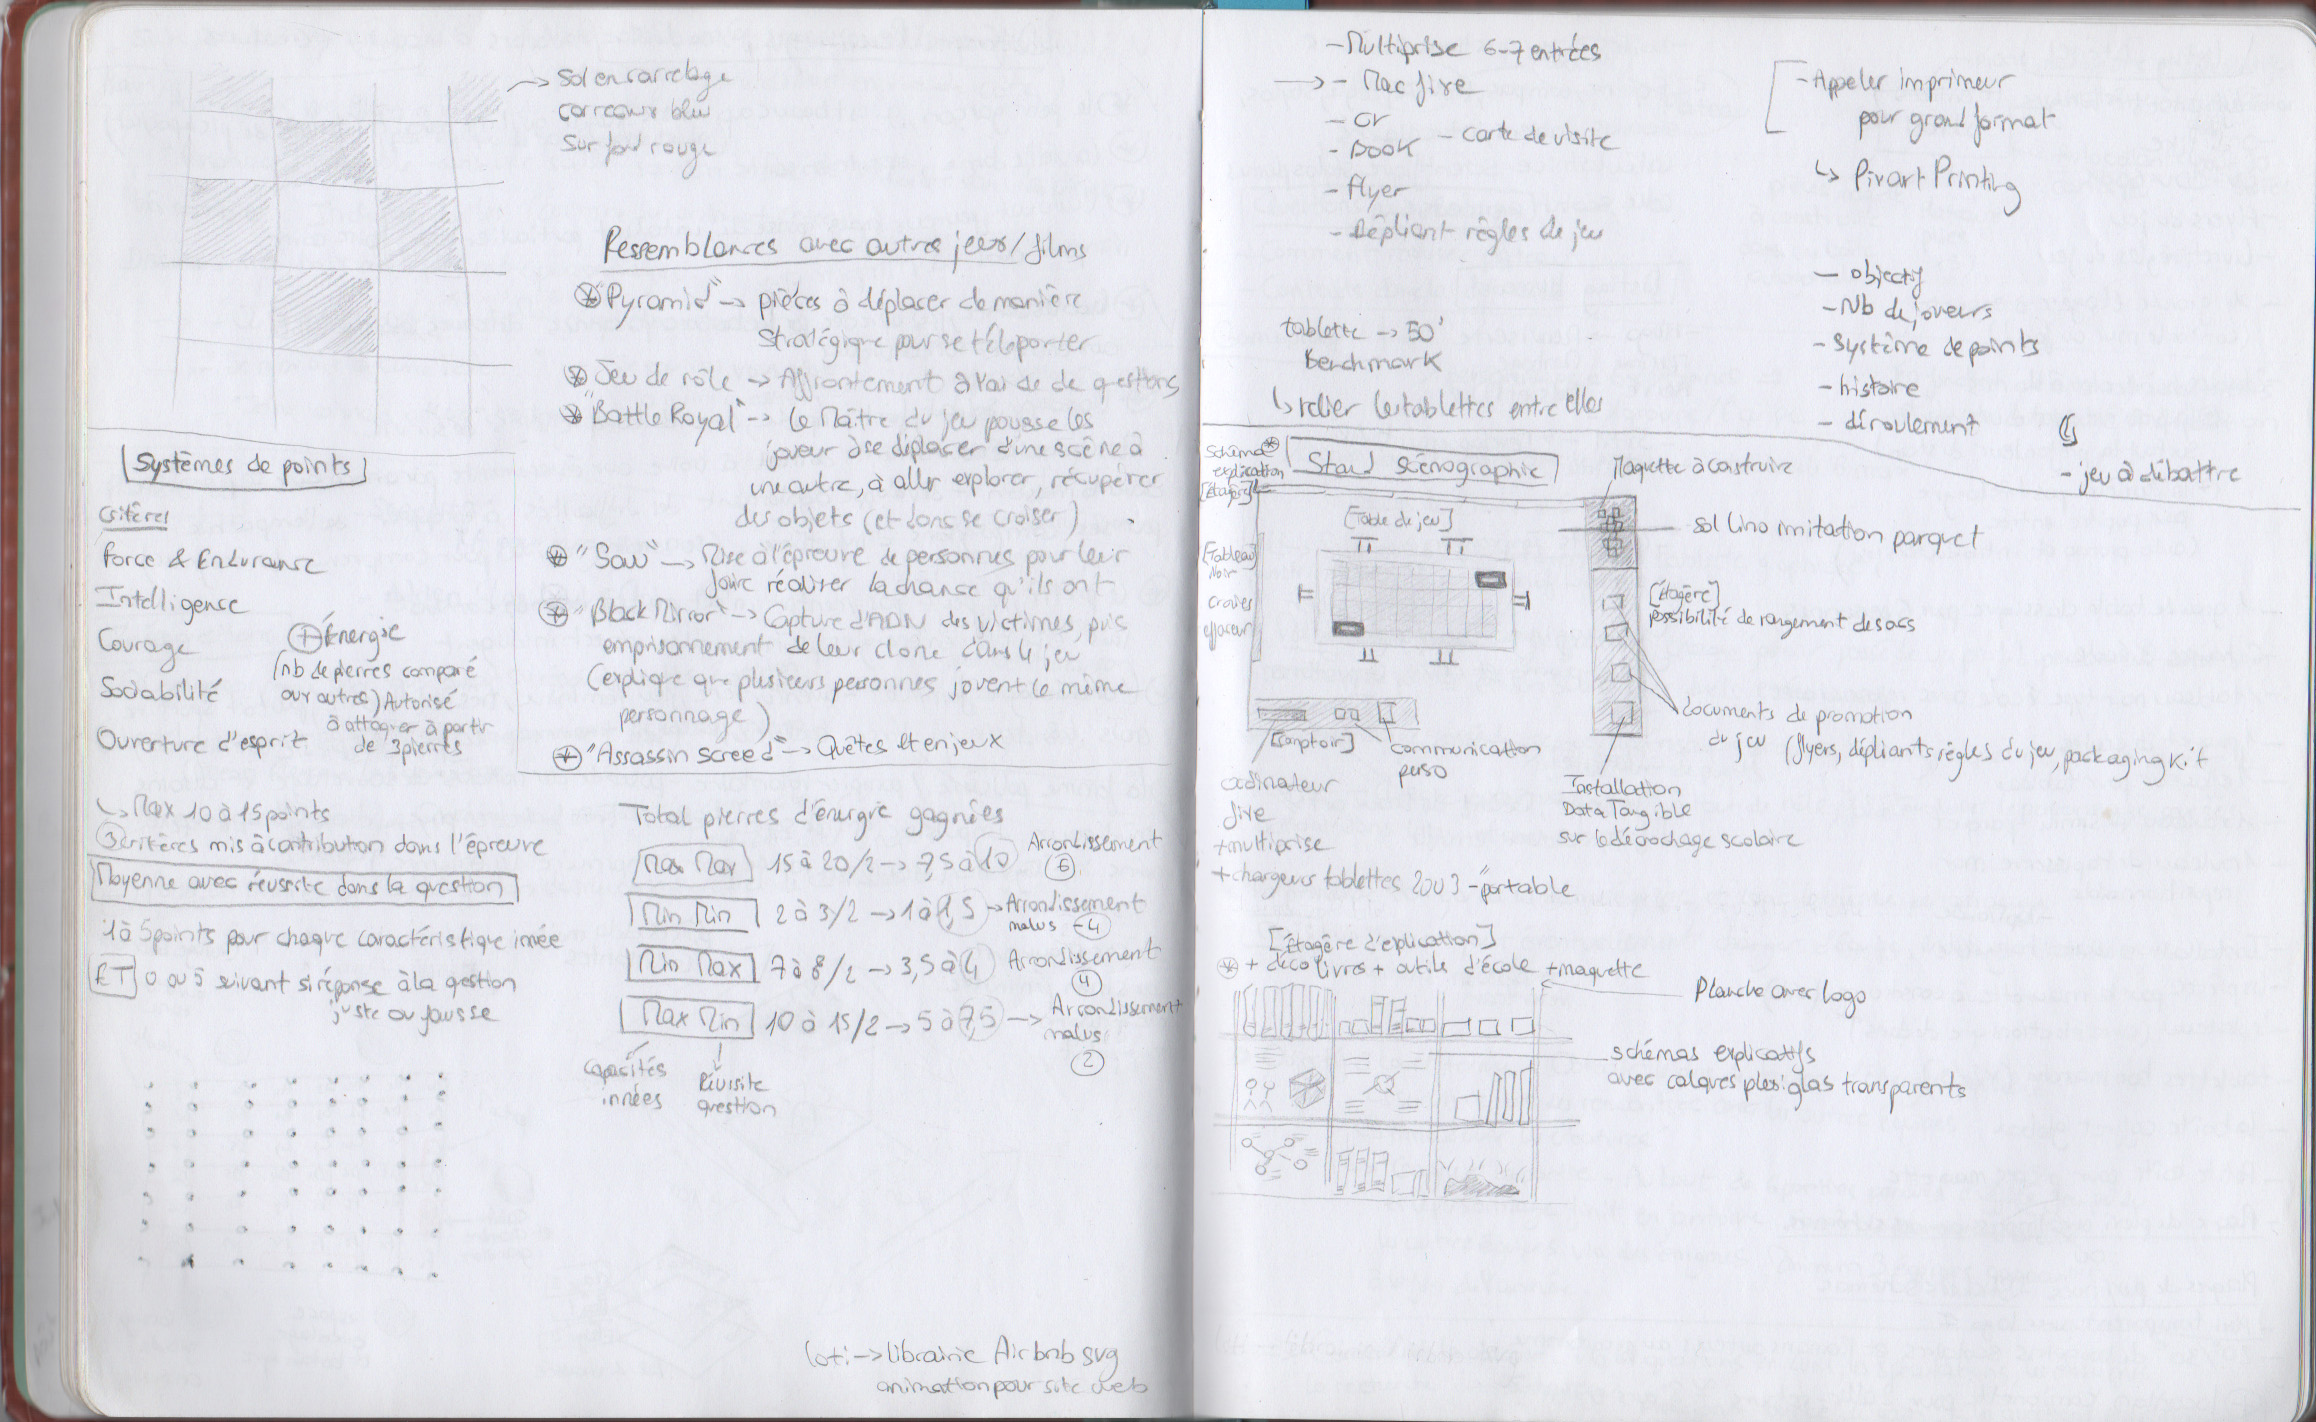 → Sol en carrelage
carreaux bleu
Sur fond rouge
Ressemblances avec autres jeux/films
"Pyramid" → pièces à déplacer de manière
stratégique pour se téléporter
Jeu de rôle → Affrontement à l'aide de questions
"Battle Royal" → Le Maître du jeu pousse les
joueur à se déplacer d'une scène à
une autre, à aller explorer, récupérer
des objets (et donc se croiser)
"Saw" → Mise à l'épreuve de personnes pour leur
faire réaliser la chance qu'ils ont
"Black Mirror" → Capture d'ADN des victimes, puis
emprisonnement de leur clone dans le jeu
(explique que plusieurs personnes jouent le même
personnage)
"Assassin screed" → Quêtes et enjeux
Systèmes de points
Critères
Force & Endurance
Intelligence
Courage
Sociabilité
Ouverture d'esprit
+ Énergie
(nb de pierres comparé
aux autres) Autorisé
à attaquer à partir
de 3 pierres
↳ Max 10 à 15 points
3 critères mis à contribution dans l'épreuve
Moyenne avec réussite dans la question
1 à 5 points pour chaque caractéristique innée
ET 0 ou 5 suivant si réponse à la question
juste ou fausse
Total pierres d'énergie gagnées
Max Max 15 à 20/2 → 7,5 à 10 Arrondissement
6
Min Min 2 à 3/2 → 1 à 1,5 → Arrondissement
malus -4
Min Max 7 à 8/2 → 3,5 à 4 Arrondissement
4
Max Min 10 à 15/2 → 5 à 7,5 → Arrondissement
malus
2
capacités
innées
Réussite
question
loti → librairie Airbnb svg
animation pour site web
- Multiprise 6-7 entrées
→ - Mac fixe
- CV
- Book - carte de visite
- Flyer
- Dépliant règles de jeu
- Appeler imprimeur
pour grand format
↳ Pixart Printing
tablette → 50'
benchmark
↳ relier les tablettes entre elles
- objectif
- Nb de joueurs
- Système de points
- histoire
- déroulement
- jeu à débattre
Schéma
explication
[Étagère]
Stand scénographie
Maquette à construire
[Table de jeu]
sol lino imitation parquet
[Tableau]
Noir
craies
effaceur
[Étagère]
possibilité de rangement des sacs
[comptoir]
communication
perso
documents de promotion
du jeu (flyers, dépliants règles du jeu, packaging kit
ordinateur
fixe
+ multiprise
+ chargeurs tablettes 2 ou 3 - portable
Installation
Data Tangible
sur le décrochage scolaire
[Étagère d'explication]
+ déco livres + outils d'école + maquette
Planche avec logo
schémas explicatifs
avec calques plexiglas transparents